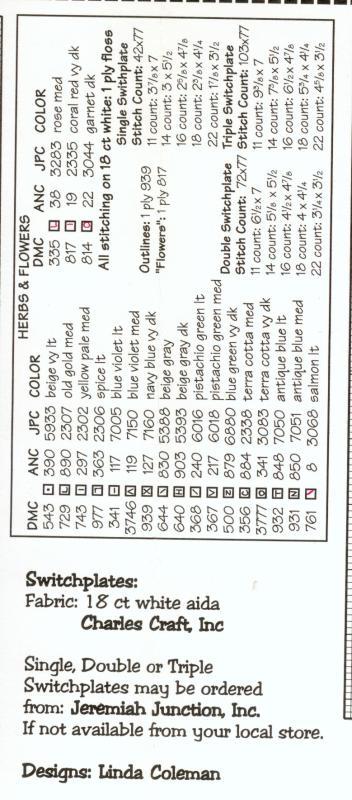 HERBS & FLOWERS
DMC ANC JPC COLOR
543 390 5933 beige vy lt
729 890 2307 old gold med
743 297 2302 yellow pale med
977 363 2306 spice lt
341 117 7005 blue violet lt
3746 119 7150 blue violet med
939 127 7160 navy blue vy dk
644 830 5388 beige gray
640 903 5393 beige gray dk
368 240 6016 pistachio green lt
367 217 6018 pistachio green med
500 879 6880 blue green vy dk
356 884 2338 terra cotta med
3777 341 3083 terra cotta vy dk
932 848 7050 antique blue lt
931 850 7051 antique blue med
761 8 3068 salmon lt
DMC ANC JPC COLOR
335 38 3283 rose med
817 19 2335 coral red vy dk
814 22 3044 garnet dk
All stitching on 18 ct white: 1 ply floss
Single Swithplate
Stitch Count: 42x77
11 count: 3⅞ x 7
14 count: 3 x 5½
16 count: 2⅝ x 4⅞
18 count: 2⅜ x 4¼
22 count: 1⅞ x 3½
Outlines: 1 ply 939
"Flowers": 1 ply 817
Double Switchplate
Stitch Count: 72x77
11 count: 6½ x 7
14 count: 5⅛ x 5½
16 count: 4½ x 4⅞
18 count: 4 x 4¼
22 count: 3¼ x 3½
Triple Switchplate
Stitch Count: 103x77
11 count: 9⅜ x 7
14 count: 7⅜ x 5½
16 count: 6½ x 4⅞
18 count: 5¾ x 4¼
22 count: 4⅝ x 3½
Switchplates:
Fabric: 18 ct white aida
Charles Craft, Inc
Single, Double or Triple
Switchplates may be ordered
from: Jeremiah Junction, Inc.
If not available from your local store.
Designs: Linda Coleman